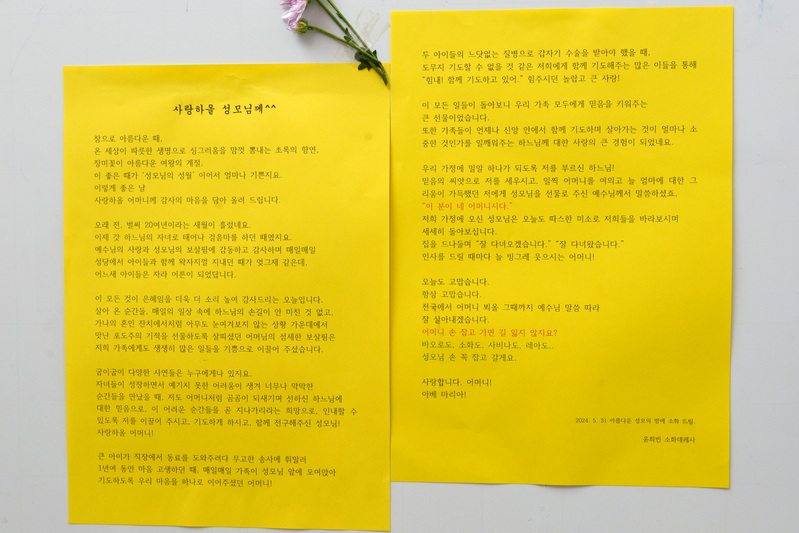 사랑하올 성모님께^^
참으로 아름다운 때,
온 세상이 따뜻한 생명으로 싱그러움을 맘껏 뽐내는 초록의 향연,
장미꽃이 아름다운 여왕의 계절.
이 좋은 때가 '성모님의 성월' 이어서 얼마나 기쁜지요.
이렇게 좋은 날
사랑하올 어머니께 감사의 마음을 담아 올려 드립니다.
오래 전, 벌써 20여년이라는 세월이 흘렀네요.
이제 갓 하느님의 자녀로 태어나 걸음마를 하던 때였지요.
예수님의 사랑과 성모님의 보살핌에 감동하고 감사하며 매일매일
성당에서 아이들과 함께 왁자지껄 지내던 때가 엊그제 같은데,
어느새 아이들은 자라 어른이 되었답니다.
이 모든 것이 은혜임을 더욱 더 소리 높여 감사드리는 오늘입니다.
살아 온 순간들, 매일의 일상 속에 하느님의 손길이 안 미친 것 없고,
가나의 혼인 잔치에서처럼 아무도 눈여겨보지 않는 상황 가운데에서
맛난 포도주의 기적을 선물하도록 살피셨던 어머님의 섬세한 보살핌은
저희 가족에게도 생생히 많은 일들을 기쁨으로 이끌어 주셨습니다.
굽이굽이 다양한 사연들은 누구에게나 있지요.
자녀들이 성장하면서 예기치 못한 어려움이 생겨 너무나 막막한
순간들을 만났을 때, 저도 어머니처럼 곰곰이 되새기며 선하신 하느님에
대한 믿음으로, 이 어려운 순간들을 곧 지나가리라는 희망으로, 인내할 수
있도록 저를 이끌어 주시고, 기도하게 하시고, 함께 전구해주신 성모님!
사랑하올 어머니!
큰 아이가 직장에서 동료를 도와주려다 무고한 송사에 휘말려
1년여 동안 마음 고생하던 때, 매일매일 가족이 성모님 앞에 모여앉아
기도하도록 우리 마음을 하나로 이어주셨던 어머니!
두 아이들의 느닷없는 질병으로 갑자기 수술을 받아야 했을 때,
도무지 기도할 수 없을 것 같은 저희에게 함께 기도해주는 많은 이들을 통해
"힘내! 함께 기도하고 있어." 힘주시던 놀랍고 큰 사랑!
이 모든 일들이 돌아보니 우리 가족 모두에게 믿음을 키워주는
큰 선물이었습니다.
또한 가족들이 언제나 신앙 안에서 함께 기도하며 살아가는 것이 얼마나 소
중한 것인가를 일깨워주는 하느님께 대한 사랑의 큰 경험이 되었네요.
우리 가정에 밀알 하나가 되도록 저를 부르신 하느님!
믿음의 씨앗으로 저를 세우시고, 일찍 어머니를 여의고 늘 엄마에 대한 그
리움이 가득했던 저에게 성모님을 선물로 주신 예수님께서 말씀하셨죠.
"이 분이 네 어머니시다."
저희 가정에 오신 성모님은 오늘도 따스한 미소로 저희들을 바라보시며
세세히 돌아보십니다.
집을 드나들며 "잘 다녀오겠습니다." "잘 다녀왔습니다."
인사를 드릴 때마다 늘 빙그레 웃으시는 어머니!
오늘도 고맙습니다.
항상 고맙습니다.
천국에서 어머니 뵈올 그때까지 예수님 말씀 따라
잘 살아내겠습니다.
어머니 손 잡고 가면 길 잃지 않지요?
바오로도, 소화도, 사비나도, 레아도..
성모님 손 꼭 잡고 갈게요.
사랑합니다. 어머니!
아베 마리아!
2024. 5. 31 아름다운 성모의 밤에 소화 드림.
윤희빈 소화데레사